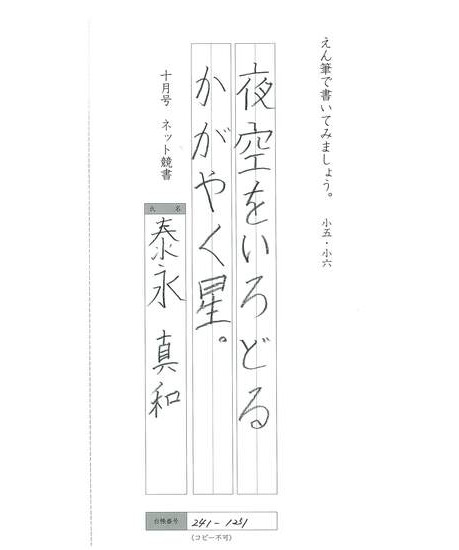 えん筆で書いてみましょう。 小五・小六
夜空をいろどる
かがやく星。
十月号 ネット競書
氏名
泰永 真和
台帳番号 241-1251
(コピー不可)